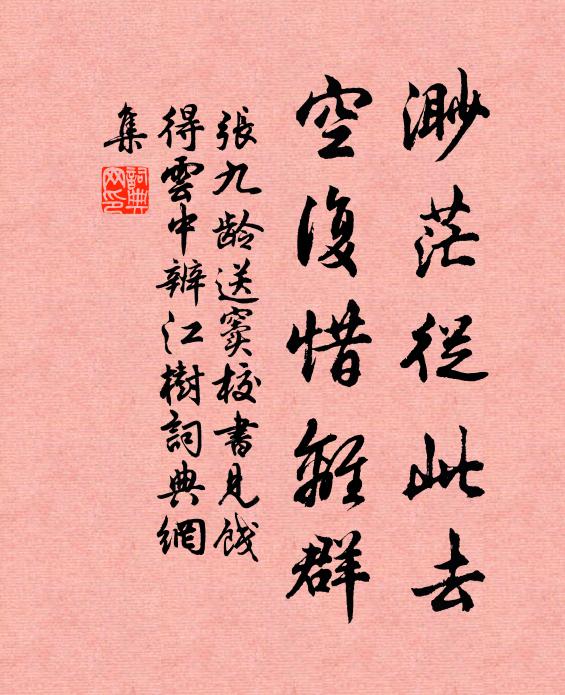 渺茫從此去
空復惜離群
張九齡送竇校書見餞
得雲中辨江樹詞典網
集
詞典
网印